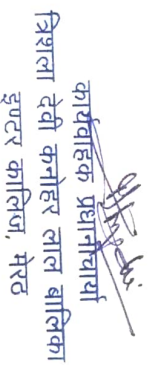 कार्यवाहक प्रधानाचार्या
त्रिशला देवी कनोहर लाल बालिका
इण्टर कालिज, मेरठ